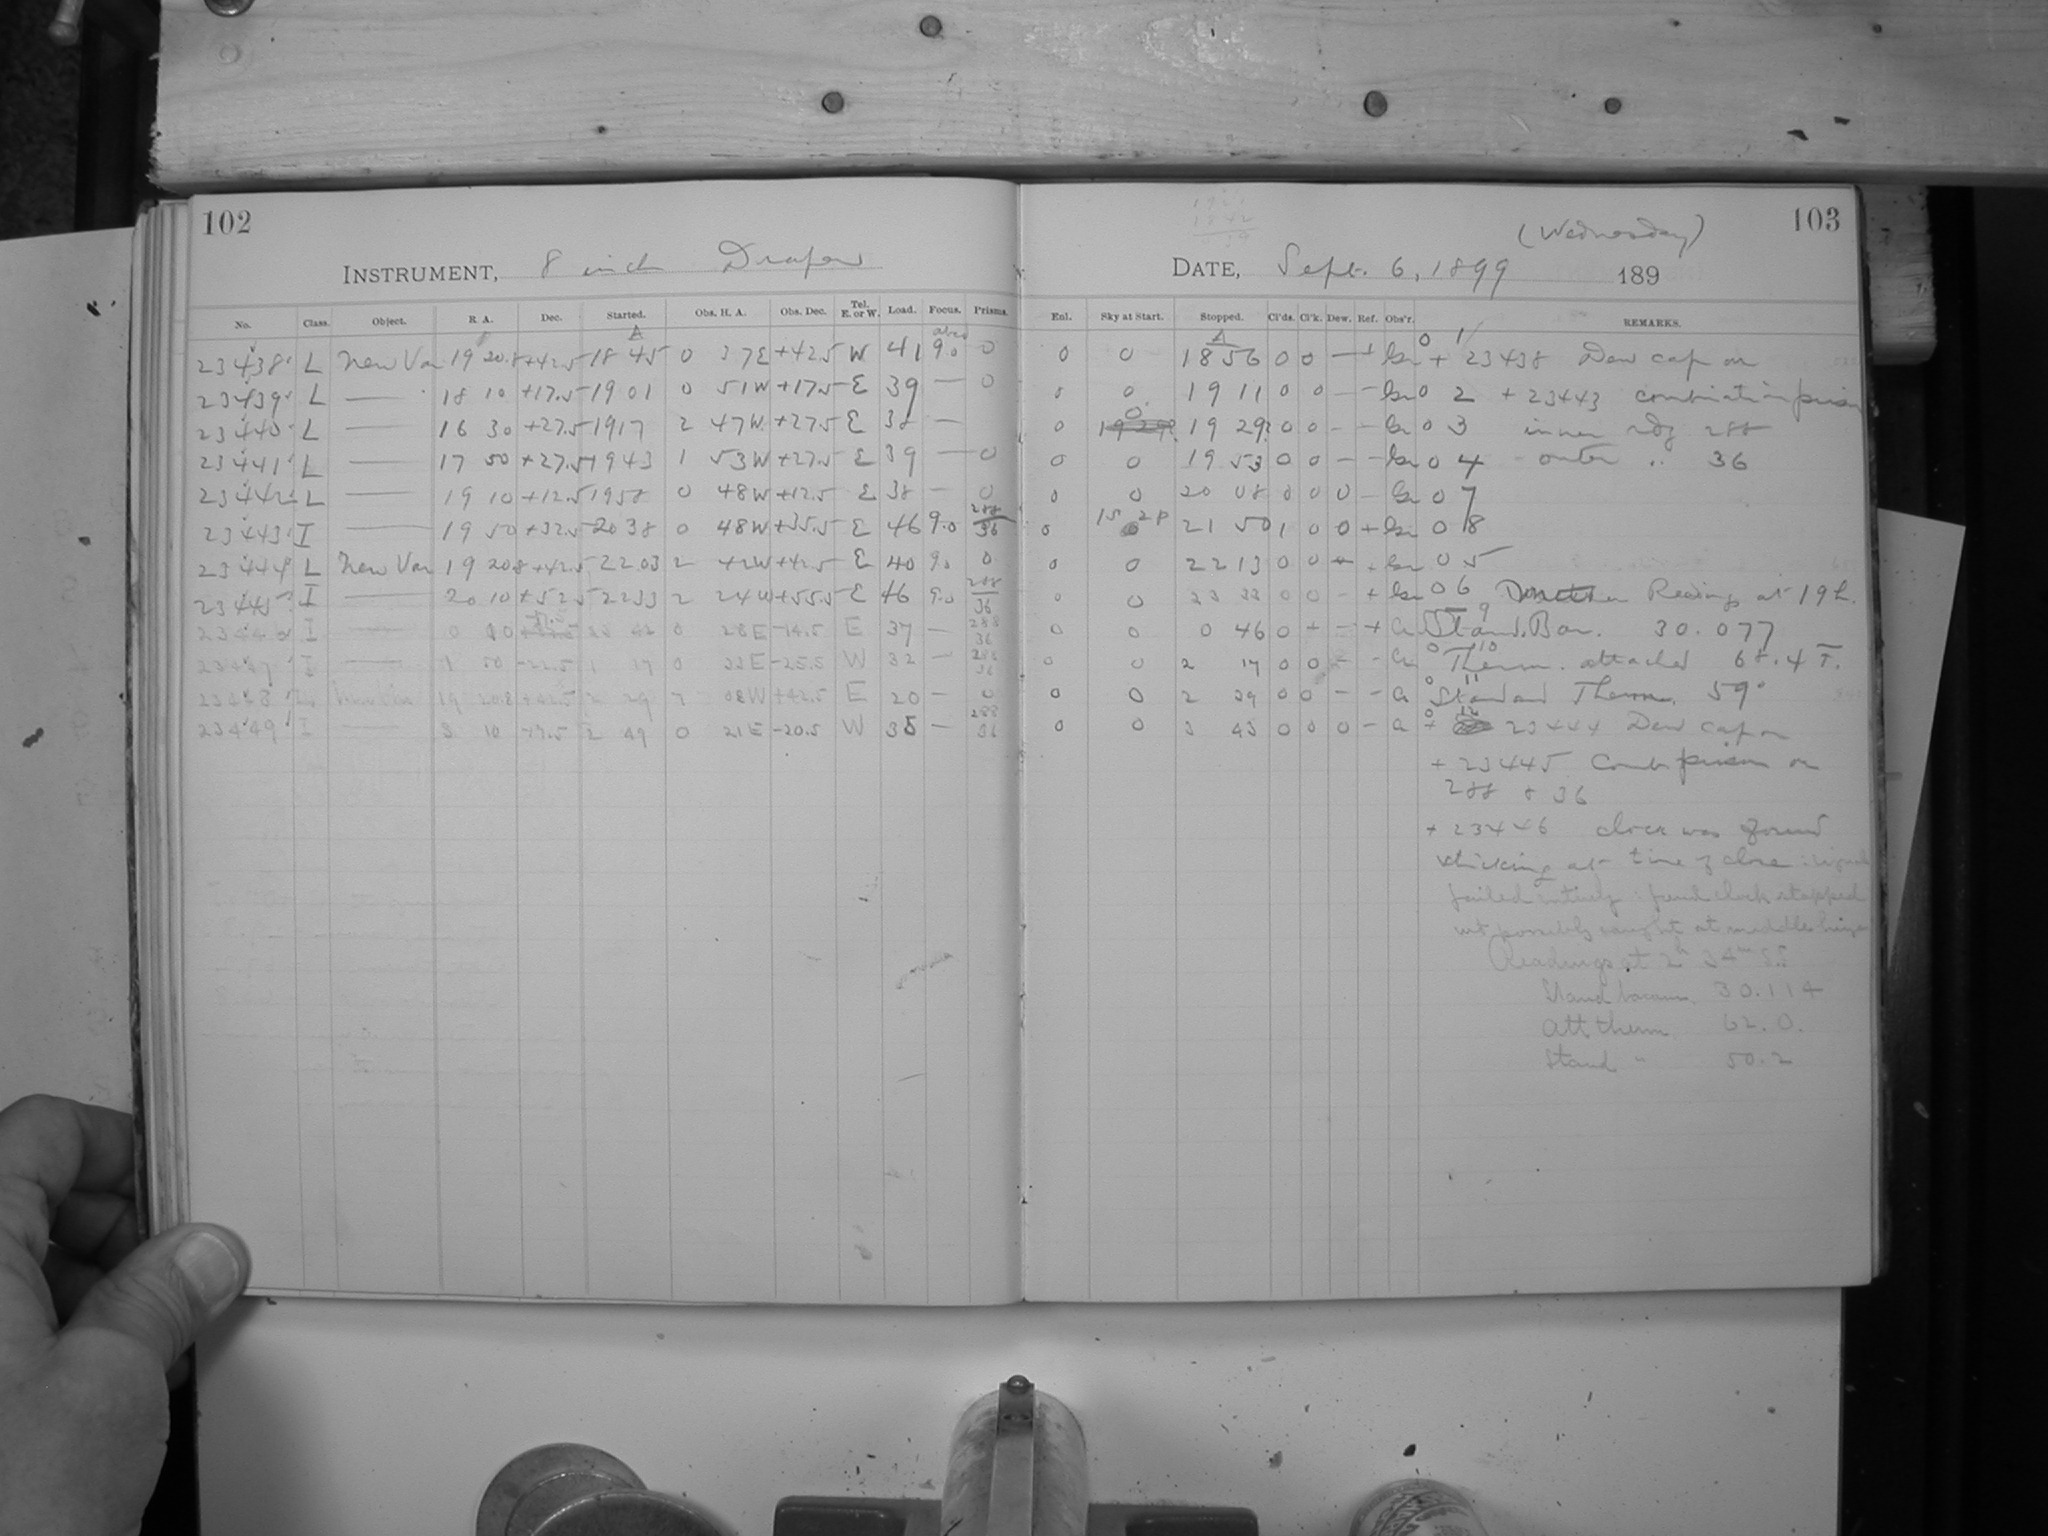 102
INSTRUMENT, 8 inch Draper
No. Class. Object. R. A. Dec. Started. Obs. H. A. Obs. Dec. Tel. E. or W. Load. Focus. Prisms.
23438 L New Var 19 20.8 +42.5 18 45 0 37E +42.5 W 41 9.0 0
23439 L — 18 10 +17.5 19 01 0 51W +17.5 E 39 — 0
23440 L — 16 30 +27.5 19 17 2 47W +27.5 E 38 —
23441 L — 17 50 +27.5 19 43 1 53W +27.5 E 39 — 0
23442 L — 19 10 +12.5 19 58 0 48W +12.5 E 38 — 0
23443 I — 19 50 +32.5 20 38 0 48W +35.5 E 46 9.0 288 36
23444 L New Var 19 20.8 +42.5 22 03 2 42W +42.5 E 40 9. 0
23445 I — 20 10 +52.5 22 33 2 24W +55.5 E 46 9.0 288 36
23446 I — 0 10 0 28E -14.5 E 37 — 288 36
23447 I — 1 50 -22.5 1 17 0 33E -25.5 W 32 — 288 36
23448 L 19 20.8 +42.5 2 29 7 08W +42.5 E 20 — 0
23449 I — 3 10 -17.5 2 49 0 21E -20.5 W 35 — 288 36
103
(Wednesday)
DATE, Sept. 6, 1899 189
Enl. Sky at Start. Stopped. Cl'ds. Cl'k. Dew. Ref. Obs'r. REMARKS.
0 0 18 56 0 0 — + 0 1 + 23438 Dew cap on
0 0 19 11 0 0 — — 0 2 + 23443 combination prism
0 0 19 29 0 0 — — 0 3 inner rdg 288
0 0 19 53 0 0 — — 0 4 outer .. 36
0 0 20 08 0 0 0 — 0 7
0 0 21 50 1 0 0 + 0 8
0 0 22 13 0 0 0 5
0 0 0 0 — + 0 6 Readings at 19 h.
0 0 0 46 0 + — + a 9 Stand. Bar. 30.077
0 0 2 17 0 0 — — a 0 10 Therm. attached 68.4 F.
0 0 2 39 0 0 — — a 0 11 Standard Therm. 59°
0 0 3 43 0 0 0 — a 0 12 + 23444 Dew cap on
+ 23445 Comb prism on
288 & 36
+ 23446 clock was found
sticking at time of close : signal
failed entirely : found clock stopped
not possibly caught at middle
Readings at 2h 34m
Stand barom. 30.114
Att. therm. 62.0.
Stand " 50.2